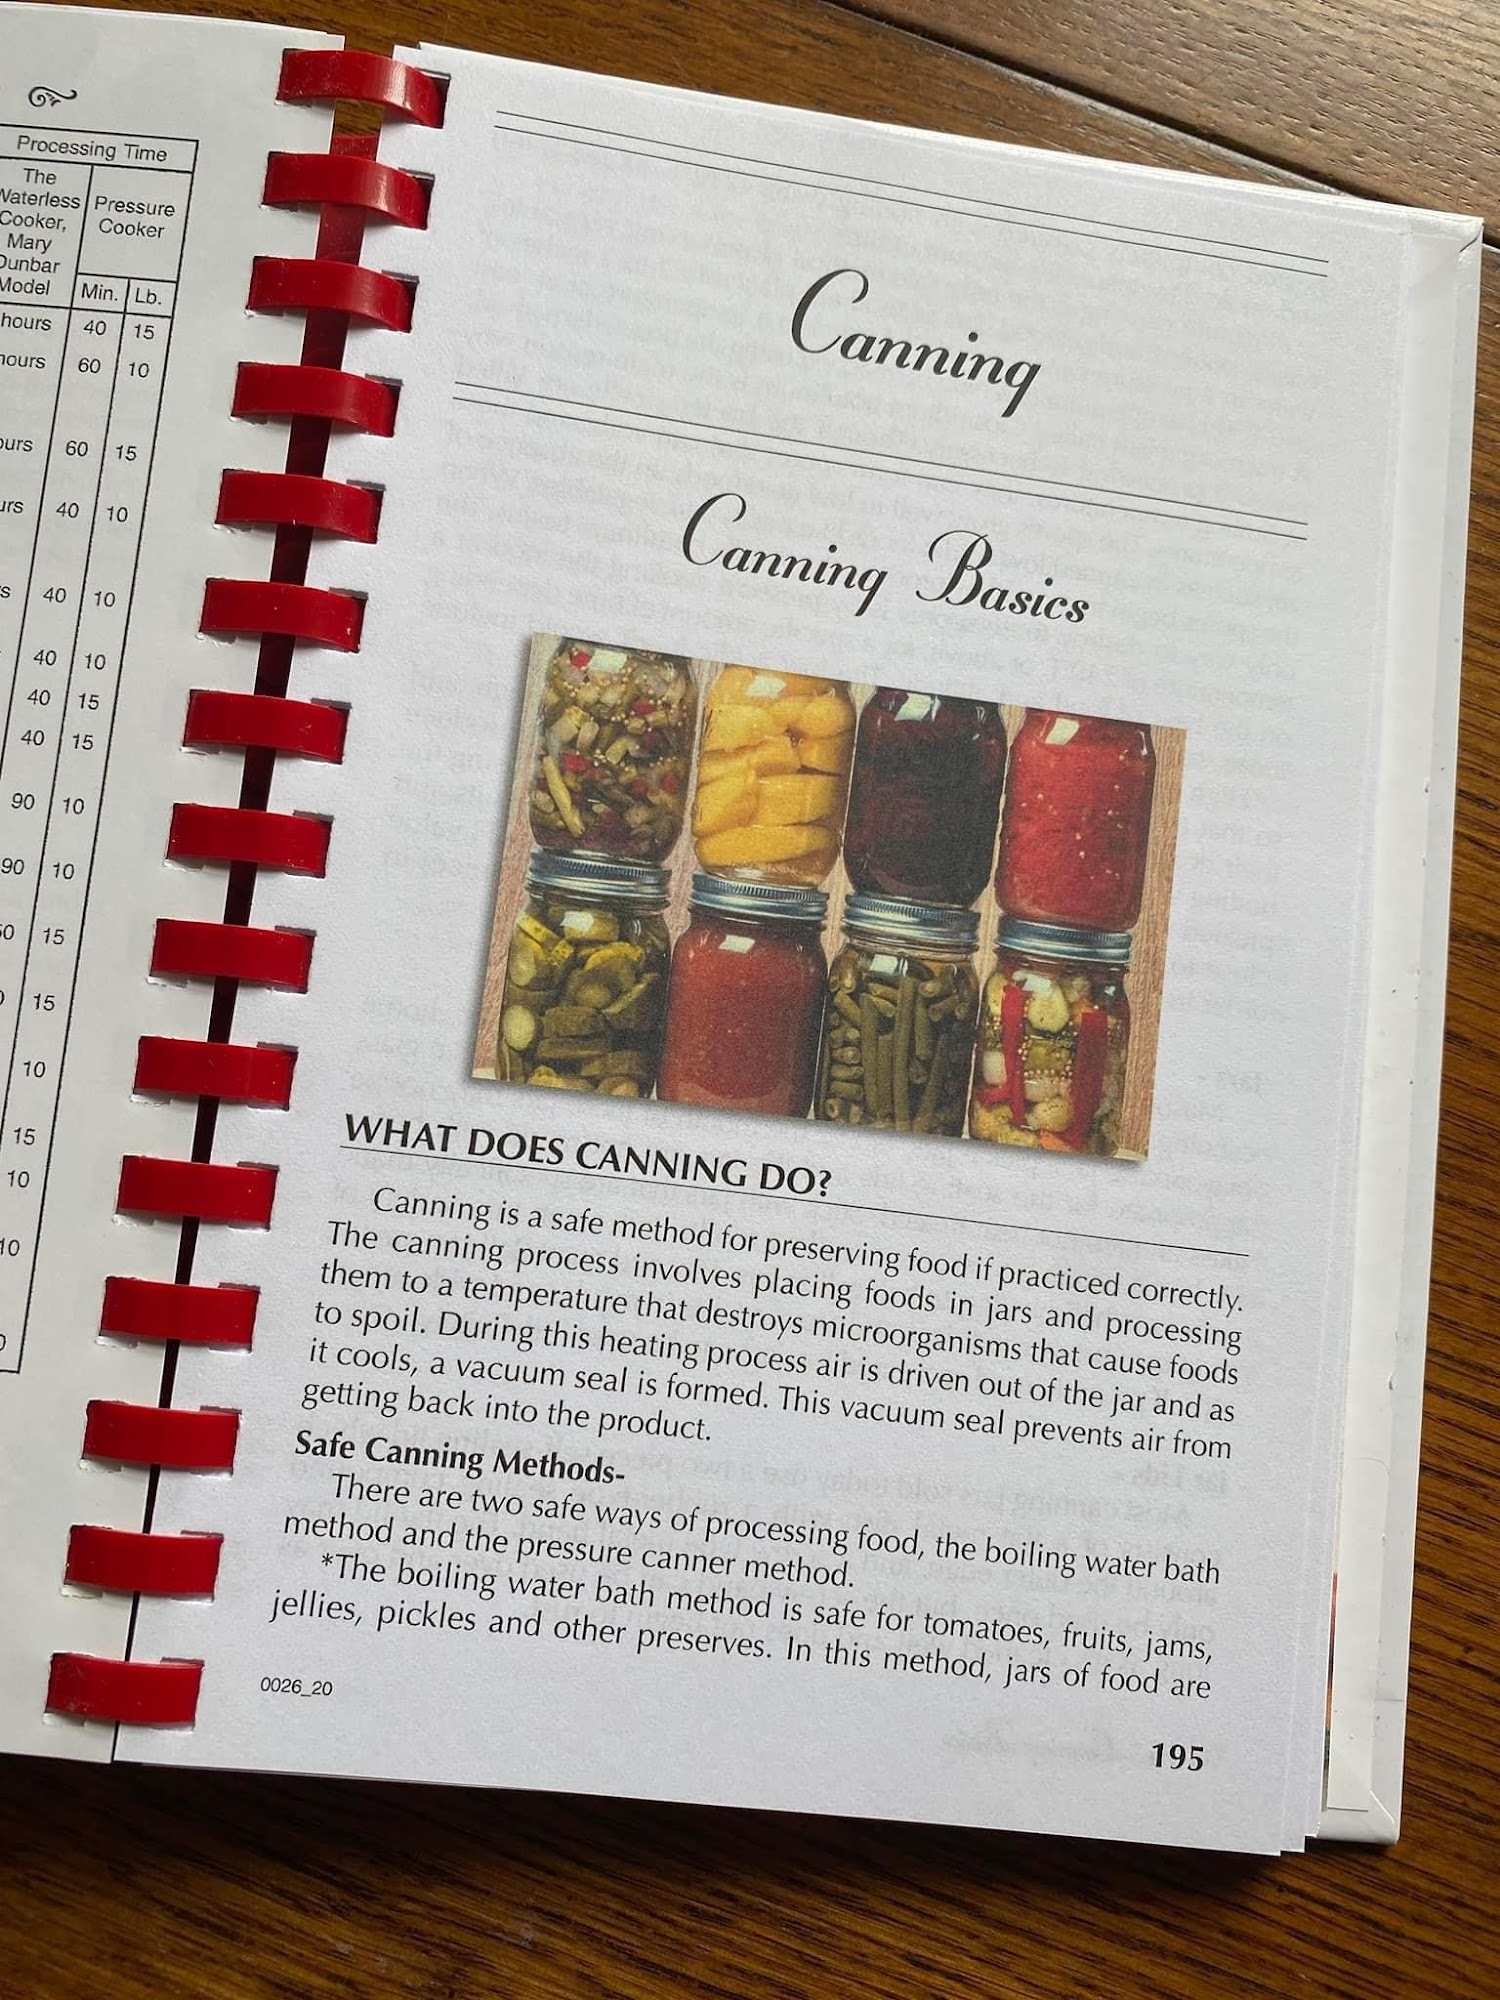 Processing Time
The
Waterless
Cooker,
Mary
Dunbar
Model
Pressure
Cooker
Min. Lb.
hours 40 15
hours 60 10
60 15
40 10
40 10
40 10
40 15
40 15
90 10
90 10
15
15
10
15
10
Canning
Canning Basics
WHAT DOES CANNING DO?
Canning is a safe method for preserving food if practiced correctly.
The canning process involves placing foods in jars and processing
them to a temperature that destroys microorganisms that cause foods
to spoil. During this heating process air is driven out of the jar and as
it cools, a vacuum seal is formed. This vacuum seal prevents air from
getting back into the product.
Safe Canning Methods-
There are two safe ways of processing food, the boiling water bath
method and the pressure canner method.
*The boiling water bath method is safe for tomatoes, fruits, jams,
jellies, pickles and other preserves. In this method, jars of food are
0026_20
195